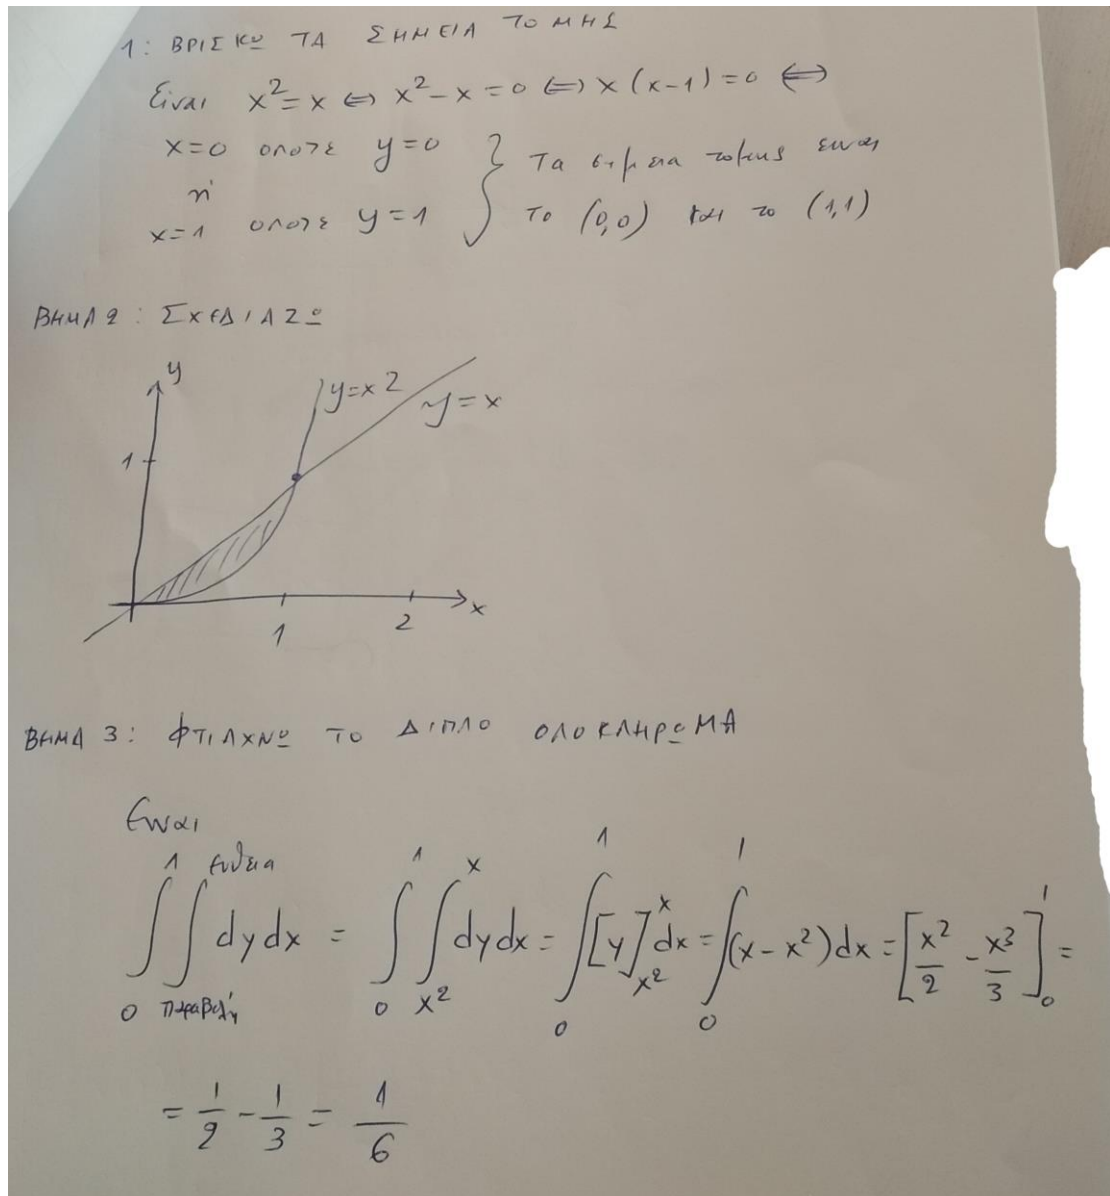 1: ΒΡΙΣΚΩ ΤΑ ΣΗΜΕΙΑ ΤΟΜΗΣ
Είναι x²=x ⇔ x²-x=0 ⇔ x(x-1)=0 ⇔
x=0 οποτε y=0 } Τα σημεια τομης ειναι
ή
x=1 οποτε y=1 } το (0,0) και το (1,1)
ΒΗΜΑ 2: ΣΧΕΔΙΑΖΩ
y
y=x2
y=x
1
x
1 2
ΒΗΜΑ 3: ΦΤΙΑΧΝΩ ΤΟ ΔΙΠΛΟ ΟΛΟΚΛΗΡΩΜΑ
Ειναι
∫₀¹ ∫_{παραβολή}^{ευθεια} dydx = ∫₀¹ ∫_{x²}^{x} dydx = ∫₀¹ [y]_{x²}^{x} dx = ∫₀¹ (x-x²)dx = [x²/2 - x³/3]₀¹ =
= 1/2 - 1/3 = 1/6